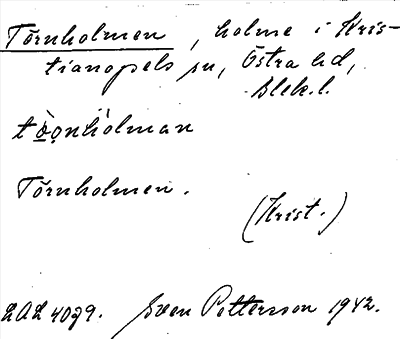 Törnholmen, holme i Kris-
tianopels sn, Östra hd,
Blek. l.
tö̀ṇhòlman
Törnholmen.
(Krist.)
LAL 4079. Sven Pettersson 1942.